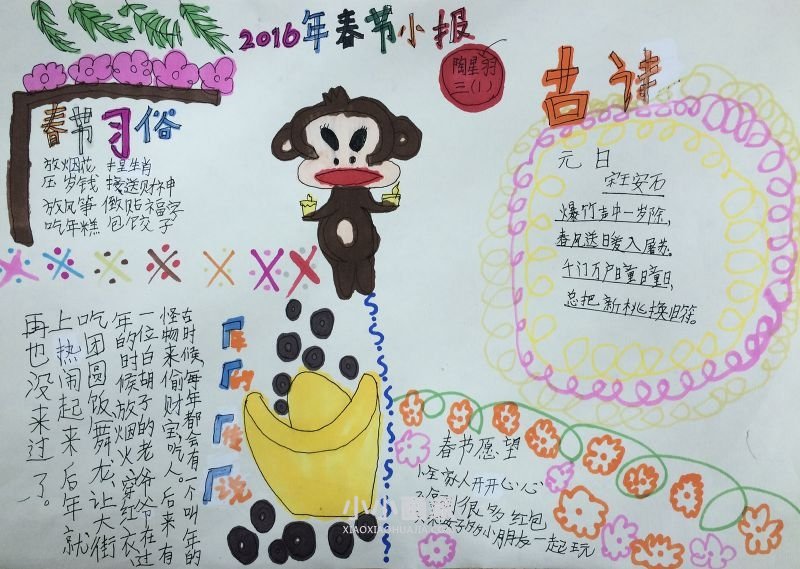 2016年春节小报
陶星羽
三(1)
春节习俗
放烟花 挂生肖
压岁钱 接送财神
放风筝 倒贴福字
吃年糕 包饺子
古诗
元日
宋王安石
爆竹声中一岁除,
春风送日爱入屠苏。
千门万户日童日童日,
总把新桃换旧符。
年的传说
古时候,每年都会有一个叫年的
怪物来偷财宝,吃人。后来有
一位白胡子的老爷爷在过
年的时候放烟火,穿红衣,
吃团圆饭,舞龙让大街
上热闹起来后年就
再也没来过了。
春节愿望
全家人开开心心
很多红包
小朋友一起玩
小小画家